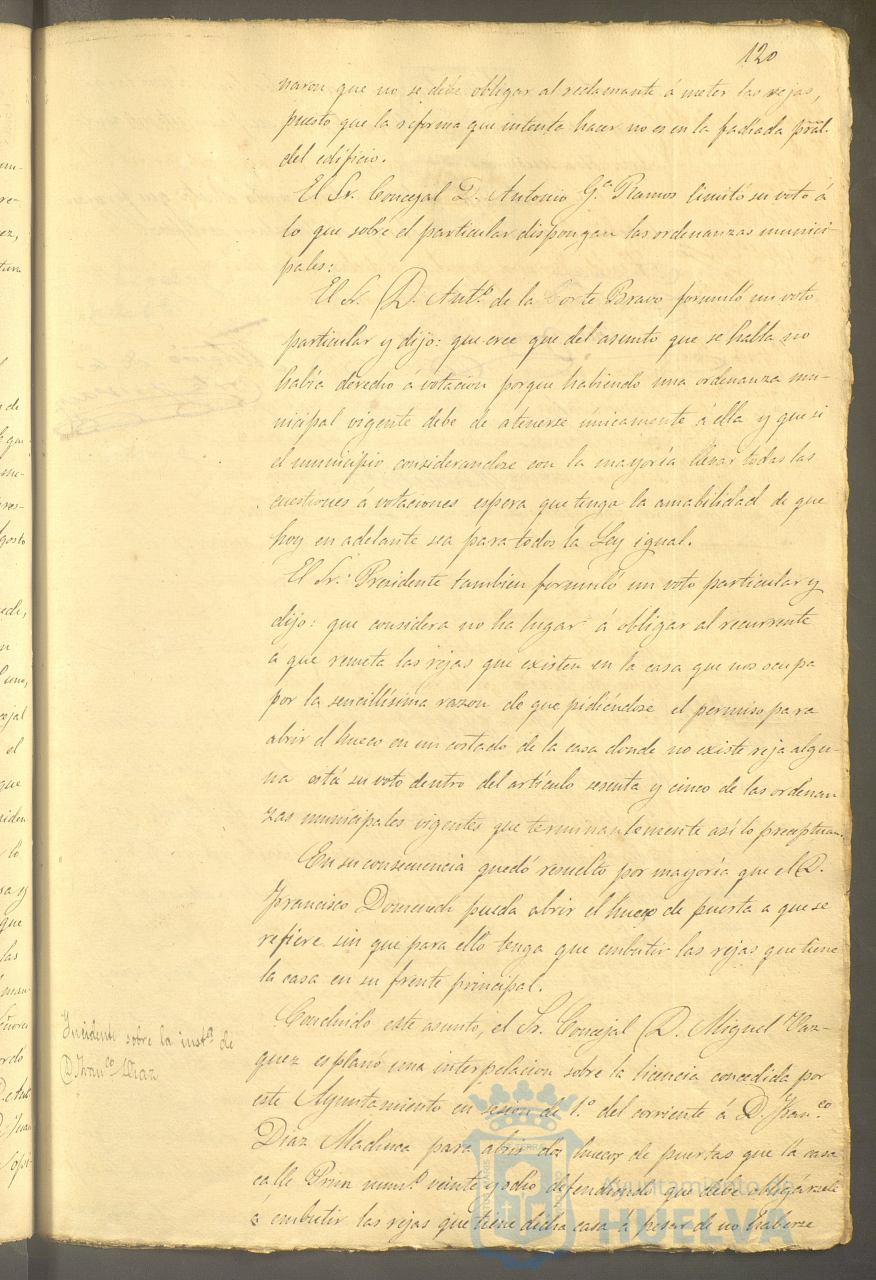 120
naron que no se debe obligar al reclamante á meter las rejas,
puesto que la reforma que intenta hacer no es en la fachada pral.
del edificio.
El Sr. Concejal D. Antonio G.ª Ramos limitó su voto á
lo que sobre el particular dispongan las ordenanzas munici-
pales:
El Sr. D. Ant.º de la Corte Bravo formuló un voto
particular y dijo: que cree que del asunto que se habla no
había derecho á votacion porque habiendo una ordenanza mu-
nicipal vigente debe de atenerse únicamente á ella y que si
el municipio considerandose con la mayoría llevar todas las
cuestiones á votaciones espera que tenga la amabilidad de que
hoy en adelante sea para todos la Ley igual.
El Sr. Presidente tambien formuló un voto particular y
dijo: que considera no ha lugar á obligar al recurrente
á que remeta las rejas que existen en la casa que nos ocupa
por la sencillísima razon de que pidiéndose el permiso para
abrir el hueco en un costado de la casa donde no existe reja algu-
na está su voto dentro del artículo sesenta y cinco de las ordenan
zas municipales vigentes que terminantemente así lo preceptuan.
En su consecuencia quedó resuelto por mayoría que el D.
Francisco Domenech pueda abrir el hueco de puerta a que se
refiere sin que para ello tenga que embutir las rejas que tiene
la casa en su frente principal.
Incidente sobre la inst.ª de
D. Fran.co Diaz
Concluido este asunto, el Sr. Concejal D. Miguel Vaz-
quez esplanó una interpelacion sobre la licencia concedida por
este Ayuntamiento en sesion de 1.º del corriente á D. Fran.co
Diaz Machuca para abrir dos huecos de puertas que la casa
calle Prim num.º veinte y ocho defendiendo que debe obligársele
á embutir las rejas que tiene dicha casa á pesar de no haberse
Ayuntamiento de
HUELVA